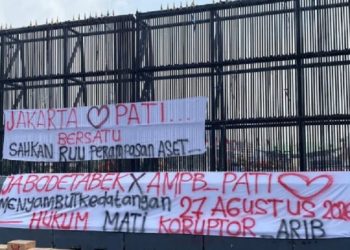 JAKARTA ♡ PATI...
BERSATU
SAHKAN RUU PERAMPASAN ASET...
JABODETABEK X AMPB_PATI ♡
MENYAMBUT KEDATANGAN 27 AGUSTUS 2026
HUKUM MATI KORUPTOR ARIB